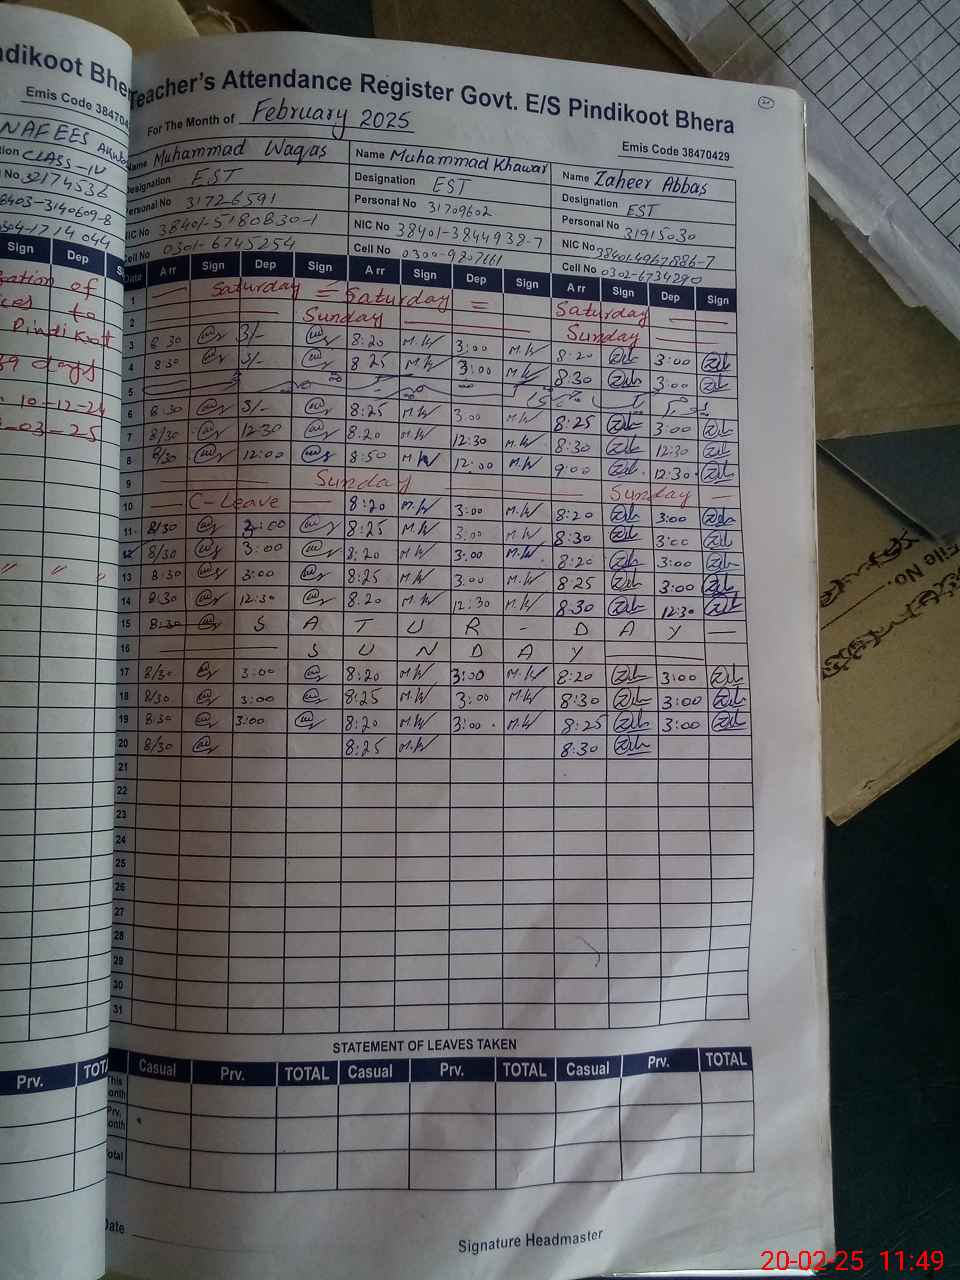 ndikoot Bhera
Emis Code 384704
NAFEES
CLASS-IV
No 32174536
8403-3140609-8
1714044
Sign Dep
of
to
Pindi Koot
39 days
10-12-24
03-25
Prv. TOTAL
Teacher's Attendance Register Govt. E/S Pindikoot Bhera
For The Month of February 2025
Emis Code 38470429
Name Muhammad Waqas Name Muhammad Khawar Name Zaheer Abbas
Designation EST Designation EST Designation EST
Personal No 31726591 Personal No 31709602 Personal No 31915030
NIC No 38401-5180830-1 NIC No 38401-3844938-7 NIC No 38401-4967886-7
Cell No 0301-6745254 Cell No 0300-9807661 Cell No 0302-6734290
Date Arr Sign Dep Sign Arr Sign Dep Sign Arr Sign Dep Sign
1 Saturday = Saturday = Saturday
2 Sunday Sunday
3 8 30 3/- 8:20 M.W 3:00 M.W 8:20 3:00
4 8:30 3/- 8 25 M.W 3:00 M.W 8:30 3:00
5
6 8:30 3/- 8:25 M.W 3:00 M.W 8:25 3:00
7 8/30 12:30 8:20 M.W 12:30 M.W 8:30 12:30
8 8/30 12:00 8:50 M.W 12:00 M.W 9:00 12:30
9 Sunday Sunday
10 C-Leave 8:20 M.W 3:00 M.W 8:20 3:00
11 8/30 3:00 8:25 M.W 3:00 M.W 8:30 3:00
12 8/30 3:00 8:20 M.W 3:00 M.W 8:20 3:00
13 8:30 3:00 8:25 M.W 3:00 M.W 8:25 3:00
14 8:30 12:30 8:20 M.W 12:30 M.W 8:30 12:30
15 8:30 S A T U R - D A Y
16 S U N D A Y
17 8/30 3:00 8:20 M.W 3:00 M.W 8:20 3:00
18 8/30 3:00 8:25 M.W 3:00 M.W 8:30 3:00
19 8:30 3:00 8:20 M.W 3:00 M.W 8:25 3:00
20 8/30 8:25 M.W 8:30
21
22
23
24
25
26
27
28
29
30
31
STATEMENT OF LEAVES TAKEN
Casual Prv. TOTAL Casual Prv. TOTAL Casual Prv. TOTAL
This
onth
Prv.
onth
otal
Date
Signature Headmaster
File No.
20-02-25 11:49